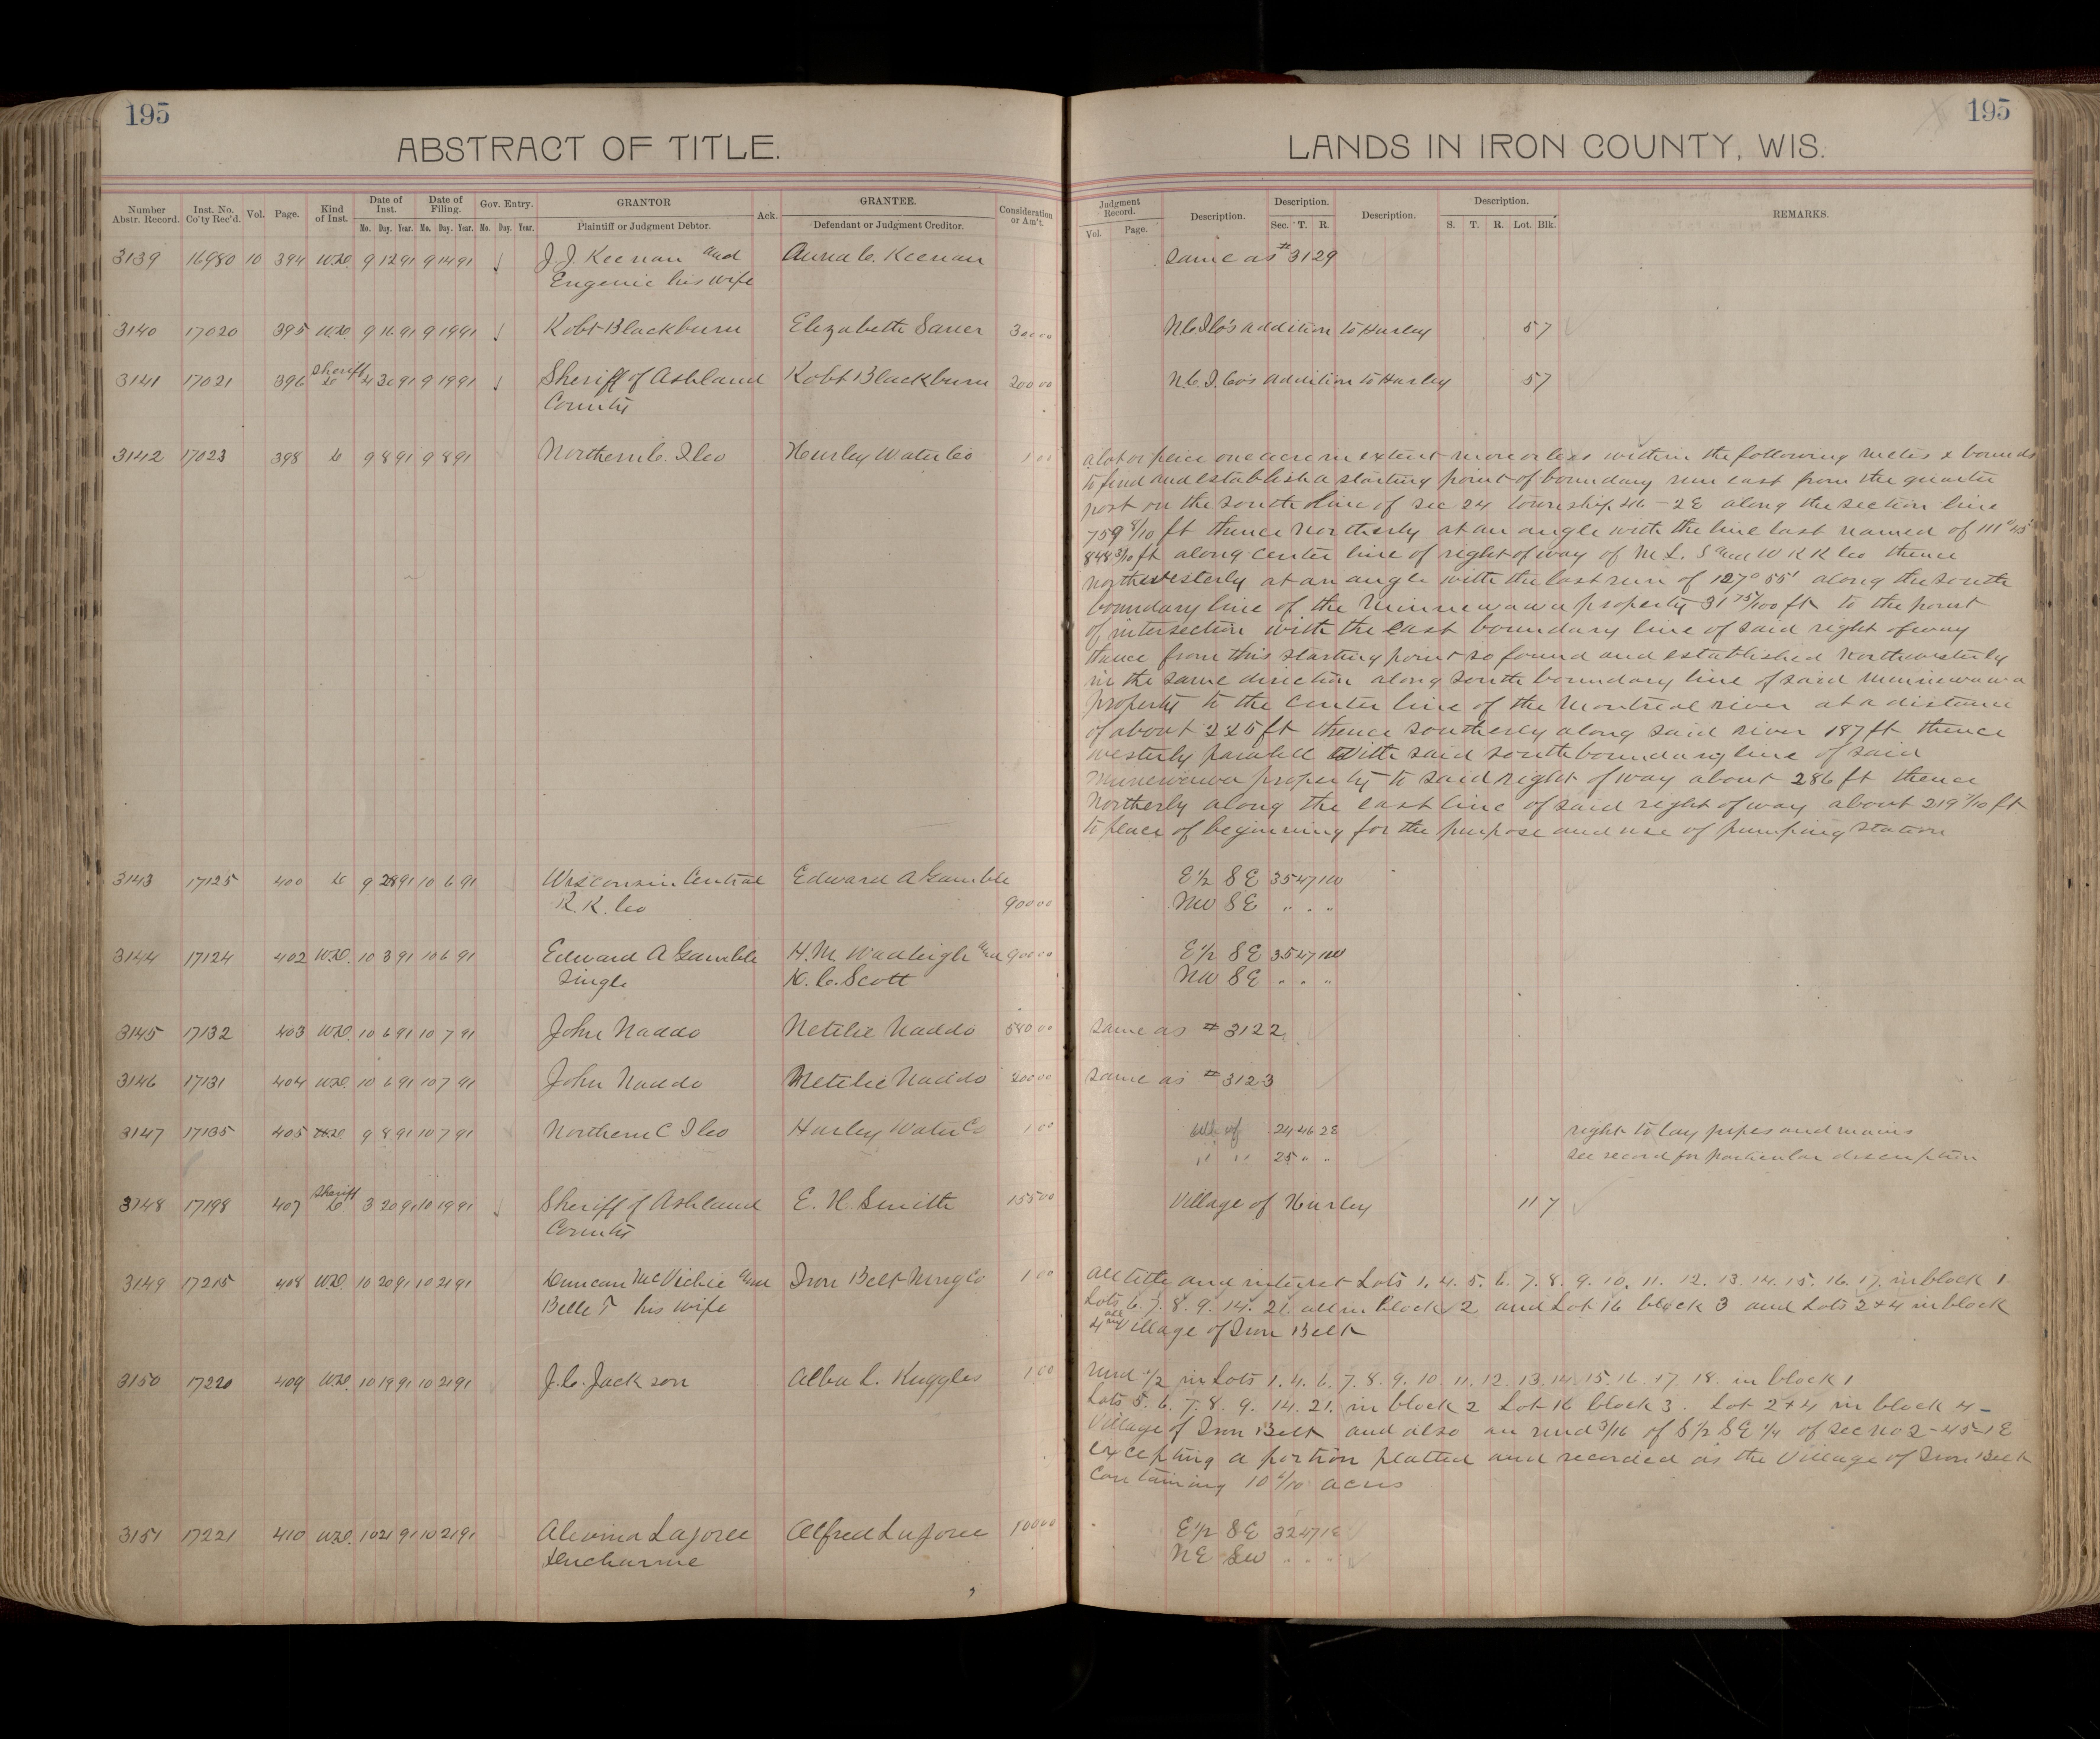 195
195
ABSTRACT OF TITLE.
LANDS IN IRON COUNTY, WIS.
Number Abstr. Record. Inst. No. Co'ty Rec'd. Vol. Page. Kind of Inst. Date of Inst. Date of Filing. Gov. Entry. GRANTOR Ack. GRANTEE. Consideration or Am't. Judgment Record. Description. Description. Description. Description. REMARKS.
Mo. Day. Year. Mo. Day. Year. Mo. Day. Year. Plaintiff or Judgment Debtor. Defendant or Judgment Creditor. Vol. Page. Sec. T. R. S. T. R. Lot. Blk.
3139 16980 10 394 W.D. 9 12 91 9 14 91 J. J. Keenan and Anna C. Keenan same as #3129
Eugenie his wife
3140 17020 395 W.D. 9 16 91 9 19 91 Robt Blackburn Elizabeth Sauer N.C.I.Co's addition to Hurley 5 7
3141 17021 396 Sheriff D 4 30 91 9 19 91 Sheriff of Ashland Robt Blackburn 200 00 N.C.I.Co's addition to Hurley 5 7
County
3142 17023 398 D 9 8 91 9 8 91 Northern C. I Co Hurley Water Co 1 00 a lot or peice one acre in extent more or less within the following metes & bounds
to find and establish a starting point of boundary run east from the quarter
post on the south line of sec 24 township 46 - 2E along the section line
759 8/10 ft thence Northerly at an angle with the line last named of 111° 15'
848 3/10 ft along center line of right of way of M L. S and W R R Co thence
Northwesterly at an angle with the last run of 127° 55' along the south
boundary line of the Minnewawa property 31 75/100 ft to the point
of intersection with the east boundary line of said right of way
thence from this starting point so found and established Northwesterly
in the same direction along south boundary line of said Minnewawa
property to the center line of the Montreal river at a distance
of about 225 ft thence southerly along said river 187 ft thence
westerly parallel with said south boundary line of said
Minnewawa property to said right of way about 286 ft thence
Northerly along the east line of said right of way about 219 7/10 ft
to place of beginning for the purpose and use of pumping station
3143 17125 400 D 9 28 91 10 6 91 Wisconsin Central Edward A Gamble E 1/2 SE 35 47 1W
R. R. Co 900 00 NW SE " " "
3144 17124 402 W.D. 10 3 91 10 6 91 Edward A Gamble H. M. Wadleigh and 900 00 E 1/2 SE 35 47 1W
single K. C. Scott NW SE " " "
3145 17132 403 W.D. 10 6 91 10 7 91 John Naddo Netelie Naddo 580 00 same as # 3122
3146 17131 404 W.D. 10 6 91 10 7 91 John Naddo Metelie Naddo 200 00 same as # 3123
3147 17135 405 9 8 91 10 7 91 Northern C I Co Hurley Water Co 1 00 all of 24 46 2E right to lay pipes and mains
" " 25 " " see record for particular description
3148 17198 407 Sheriff D 3 20 91 10 19 91 Sheriff of Ashland E. H. Smith 155 00 Village of Hurley 11 7
County
3149 17215 408 W.D. 10 20 91 10 21 91 Duncan McVichie and Iron Belt Mng Co 1 00 all title and interest Lots 1. 4. 5. 6. 7. 8. 9. 10. 11. 12. 13. 14. 15. 16. 17. in block 1
Belle T his wife Lots 6. 7. 8. 9. 14. 21. all in block 2 and Lot 16 block 3 and Lots 2 & 4 in block
4 all in Village of Iron Belt
3150 17220 409 W.D. 10 19 91 10 21 91 J. C. Jackson Alba L. Ruggles 1 00 und 1/2 in Lots 1. 4. 6. 7. 8. 9. 10. 11. 12. 13. 14. 15. 16. 17. 18. in block 1
Lots 5. 6. 7. 8. 9. 14. 21. in block 2 Lot 16 block 3. Lot 2 & 4 in block 4 -
Village of Iron Belt and also an und 3/16 of S 1/2 SE 1/4 of sec no 2 - 45 - 1E
excepting a portion platted and recorded as the Village of Iron Belt
containing 10 6/10 acres
3151 17221 410 W.D. 10 21 91 10 21 91 Alvina LaJoree Alfred LaJoree 100 00 E 1/2 SE 32 47 1E
Ducharme NE SW " " "